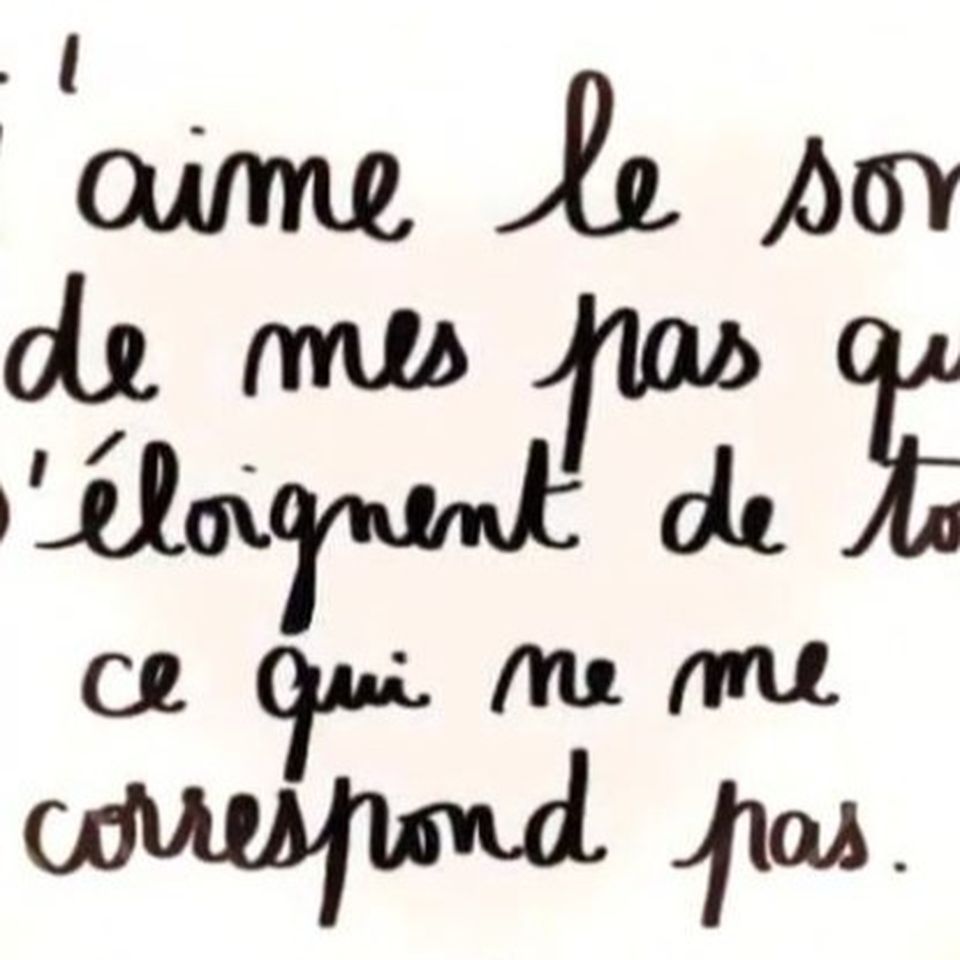 J'aime le son
de mes pas qui
s'éloignent de tout
ce qui ne me
correspond pas.